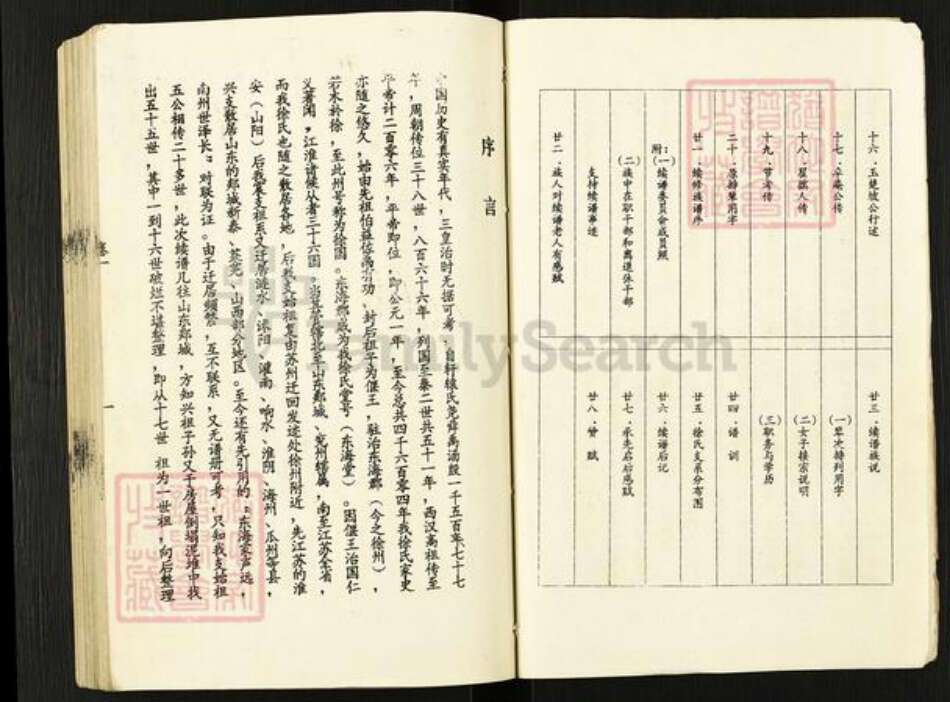 十六．玉楚坡公行述
十七．辛庵公传
十八．星孺人传
十九．节孝传
二十．原排辈用字
廿一．续修族谱序
附：
(一)续谱委员会成员照
(二)族中在职干部和离退休干部
支持续谱事迹
廿二．族人对续谱老人有感赋
廿三．续谱族说
(一)辈次排列用字
(二)女子接宗说明
(三)职务与学历
廿四．谱训
廿五．徐氏支系分布图
廿六．续谱后记
廿七．承先启后感赋
廿八．赞赋
序言
国历史有真实年代，三皇治时无据可考，自轩辕氏尧舜禹汤殷一千五百年七十七
年，周朝传位三十八世，八百六十六年，列国至秦二世共五十一年，西汉高祖传至
平帝计二百零六年，平帝即位，即公元一年，至今总共四千六百零四年我徐氏家史
亦随之悠久，始由先祖伯益佐禹有功、封后祖子为偃王，驻治东海郡（今之徐州），
若木於徐，至此州号称为徐国。东海郡或为我徐氏堂号（东海堂）。因偃王治国仁
义著闻，江淮诸侯从者三十六国。北至山东郯城、兖州辖属，南至江苏全省，
而我徐氏也随之散居各地，后我支始祖复由苏州迁回发迹处徐州附近，先江苏的淮
安（山阳）后我震支祖系又迁居涟水、沭阳、灌南、响水、淮阴、海州、瓜州等县，
兴支散居山东的郯城新泰、莱芜、山西部分地区。至今还有先引用的：东海家声远，
南州世泽长：对联为证。由于迁居频繁，互不联系，又无谱册可考，只知我支始祖
五公相传二十多世，此次续谱几往山东郯城，方知兴祖子孙又于房屋倒塌泥堆中找
出五十五世，其中一到十六世破烂不堪整理，即从十七世 祖为一世祖，向后整理
卷一
一
FamilySearch